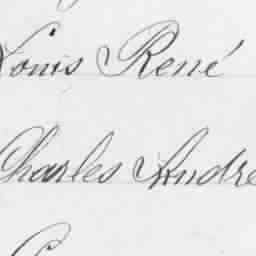 Louis René
Charles André